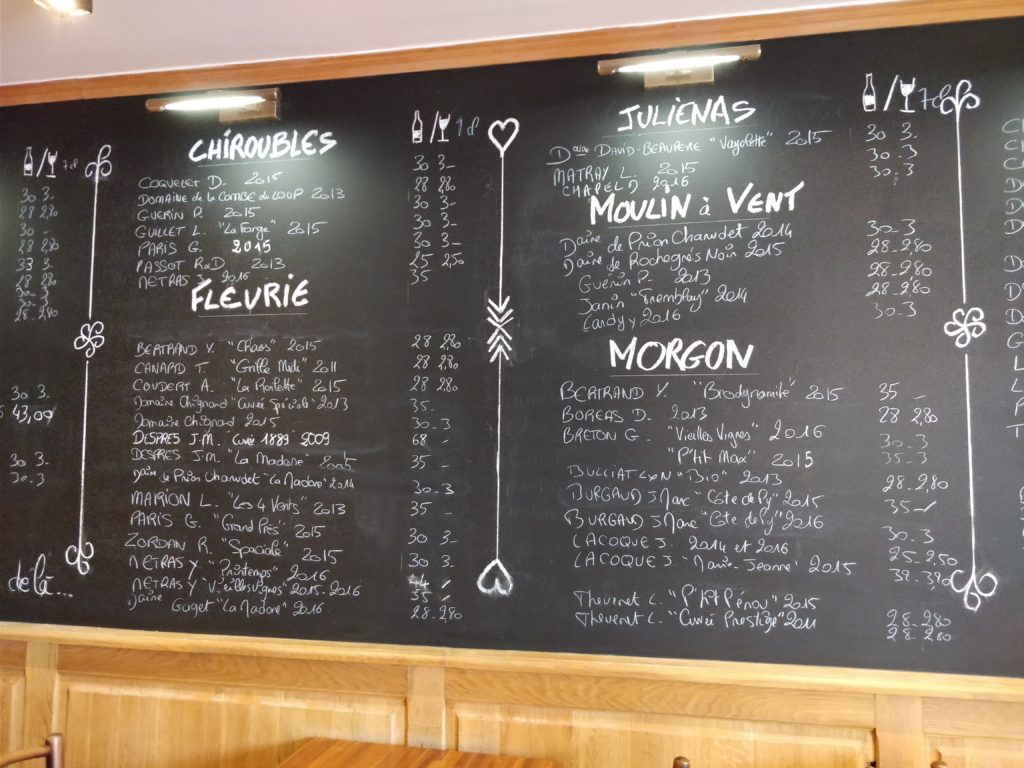 7 cl
30 3.
28 2,80
30 -
28 2,80
33 3.
28 2,80
30 3.
28 2,80
30 3.
43,00
30 3.
30 3.
de là...
CHIROUBLES
COQUELET D. 2015
DOMAINE de la COMBE du LOUP 2013
GUERIN P. 2015
GUILLET L. "La Forge" 2015
PARIS G. 2015
PASSOT R&D. 2013
METRAS 2016
30 3-
28 280
30 3-
30 3-
30 3-
25 2,50
35
FLEURIE
BERTRAND Y. "Chaos" 2015
CANARD T "Griffe Midi" 2011
COUDERT A. "La Roilette" 2015
Domaine Chignard "Cuvée Spéciale" 2013
Domaine Chignard 2015
DESPRES J.M. Cuvée 1889 2009
DESPRES J.M. "La Madone" 2005
Daine de Prion Chanudet "La Madone" 2014
MARION L. "Les 4 Vents" 2013
PARIS G. "Grand Près" 2015
ZORDAN R. "Spéciale" 2015
METRAS Y "Printemps" 2016
METRAS Y "Vieilles Vignes" 2015-2016
Daine Goguet "La Madone" 2016
28 280
28 2,80
28 280
35-
30-3
68 -
35 -
30-3
35 -
30 3-
30 3-
35
28-2,80
JULIÉNAS
7cl
Daine DAVID-BEAUPERE "Vayolette" 2015
MATRAY L. 2015
CHAPEL D 2016
30 3.
30-3
30-3
MOULIN à VENT
Daine de Prion Chanudet 2014
Daine de Rochegrès Noir 2015
Guérin P. 2013
Janin "Tremblay" 2014
2016
30-3
28-2,80
28-2,80
28-2,80
30-3
MORGON
BERTRAND Y. "Biodynamite" 2015 35 -
BOREAS D. 2013 28 2,80
BRETON G. "Vieilles Vignes" 2016 30-3
"P'tit Max" 2015 35-3
BULLIAT L&N "Bio" 2013 28-2,80
BURGAUD J.Marc "Côte de Py" 2015 35-
BURGAUD J.Marc "Côte de Py" 2016 30-3
LACOQUE J. 2014 et 2016 25-2,50
LACOQUE J. "Marie-Jeanne" 2015 39-390
Thevenet C. "P'tit Pérou" 2015 28-2,80
Thevenet C. "Cuvée Prestige" 2011 28-2,80